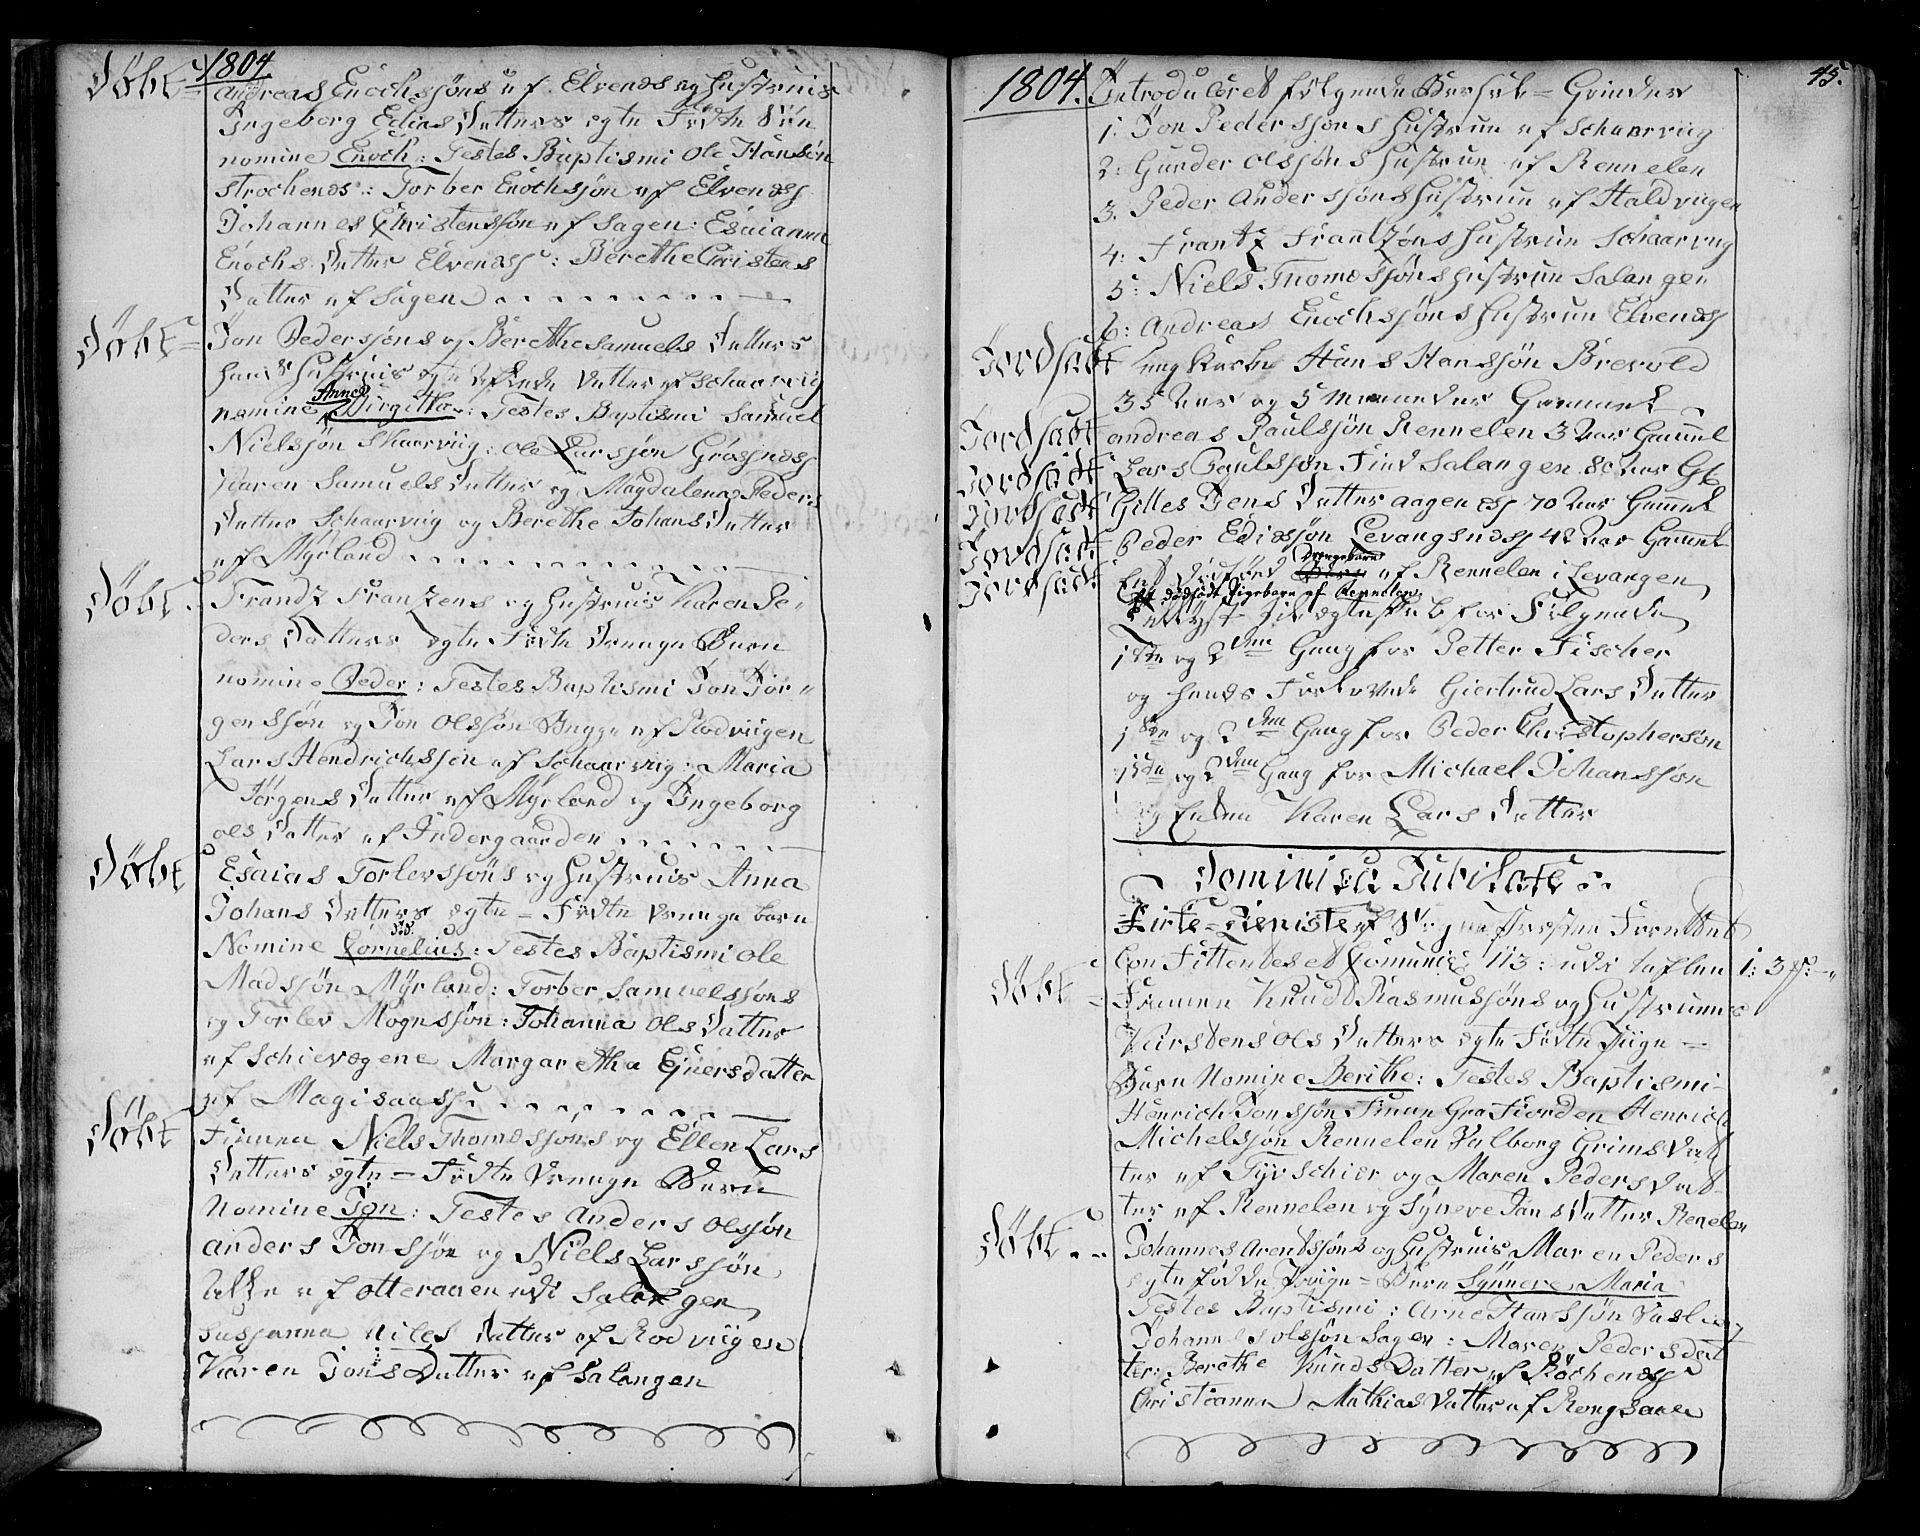 1804
Døbt = Andreas Enochsjøns af Elvenæs og Hustruis
Ingeborg Edias Datters egte Fødte Søn
nomine Enoch: Testes Baptismi Ole Hansøn
Strochenæs: Torber Enochsjøn af Elvenæss
Johannes Christensjøn af Sagen: Esaianna
Enochs Datter Elvenæss: Berethe Christens
Datter af Sagen
Døbt = Jon Pedersjøns og Berethe Samuels Datters
hans Hustruis egte Datter af Schaarviig
Anne
nomine Birgitha: Testes Baptismi Samuel
Nielsjøn Skaarviig: Ole Larsjøn Grøsnæss
Karen Samuels Datter og Magdalena Peders
Datter Schaarviig og Berethe Johans Datter
af Myrland
Døbt Frandz Franzens og Hustruis Karen Pe-
ders Datters egte Fødte Drenge Barn
nomine Peder: Testes Baptismi Jon Jør-
gensjøn og Jon Olsjøn Bugge af Rodviigen
Lars Hendrichsjøn af Schaarviig: Maria
Jørgens Datter af Myrland og Ingeborg
Ols Datter af Indergaarden
Døbt Esaias Torlevsjøns og Hustruis Anna
Johans Datters egte = Fødte Drenge barn
død.
Nomine Cornelius: Testes Baptismi Ole
Madsjøn Myrland: Torber Samuelsjøns
og Torlev Mognsjøn: Johanna Ols Datter
af Schievægene Margaretha Ejnersdatter
af Magisaass
Døbt Finnen Niels Thomæsjøns og Ellen Lars
Datters egte = Fødte Drenge Barn
Nomine Jon: Testes Anders Olsjøn
Anders Jonsjøn og Niels Larsjøn
alle af Otteraaen udi Salangen
Susjanna Niels Datter af Rodviigen
Karen Jons Datter af Salangen
45.
1804. Introduceret følgende Qvinder
1: Jon Pedersjøns Hustrue af Schaarviig
2: Gunder Olsjøns Hustrue af Rennelen
3. Peder Andersjøns Hustrue af Haldviigen
4: Frantz Frantzøns Hustrue Schaarviig
5: Niels Thomæsjøns Hustrue Salangen
6: Andreas Enochsjøns Hustrue Elvenæss
Jordsadt Ungkarl Hans Hansjøn Brevold
35 Aar og 5 Maaneder Gammel
Jordsadt Andreas Paulsjøn Rennelen 3 Aar Gammel
Jordsadt Lars Paulsjøn Find Salangen 80 Aar Gl
Jordsadt Gilles Jens Datter Aagenæss 70 Aar Gammel
Jordsadt Peder Ediasjøn Levangsnæss 48 Aar Gammel
Drengebarn
Jordsadt Et Dødfød af Rennelen i Levangen
Et dødfødt Pigebarn af Rennelen
Tillyst til egteskab for Følgende
1ste og 2den Gang for Petter Fischer
og hends Forlovede Giertrud Lars Datter
1ste og 2den Gang for Peder Christophersøn
1ste og 2den Gang for Michael Johansjøn
og Enken Karen Lars Datter
Dominica Jubilate
Kirke-Tienisten af Sogne Presten Forrettet
Confittentes et Comunic: 113: udi taflen 1: 3 s:
Døbt = Finnen Knud Rasmusjøns og Hustruens
Kirstens Ols Datters egte Fødte Pige =
Barn Nomine Berithe: Testes Baptismi
Henrich Jonsjøn Finn Grafiorden Henrich
Michelsjøn Rennelen Valborg Grims Dat
ter af Tyvschier og Maren Peders Dat
ter af Rennelen og Synneve Jans Datter Renelen
Døbt Johannes Arentsjøns og Hustruis Maren Peders
egte fødde Pige = Barn Synneve Maria
Testes Baptismi: Arne Hansjøn
Johannes Olsjøn Sagen: Maren Peders dat
ter: Berethe Knuds Datter af Røchenæss
Christianna Mathias Datter af Rengsaae